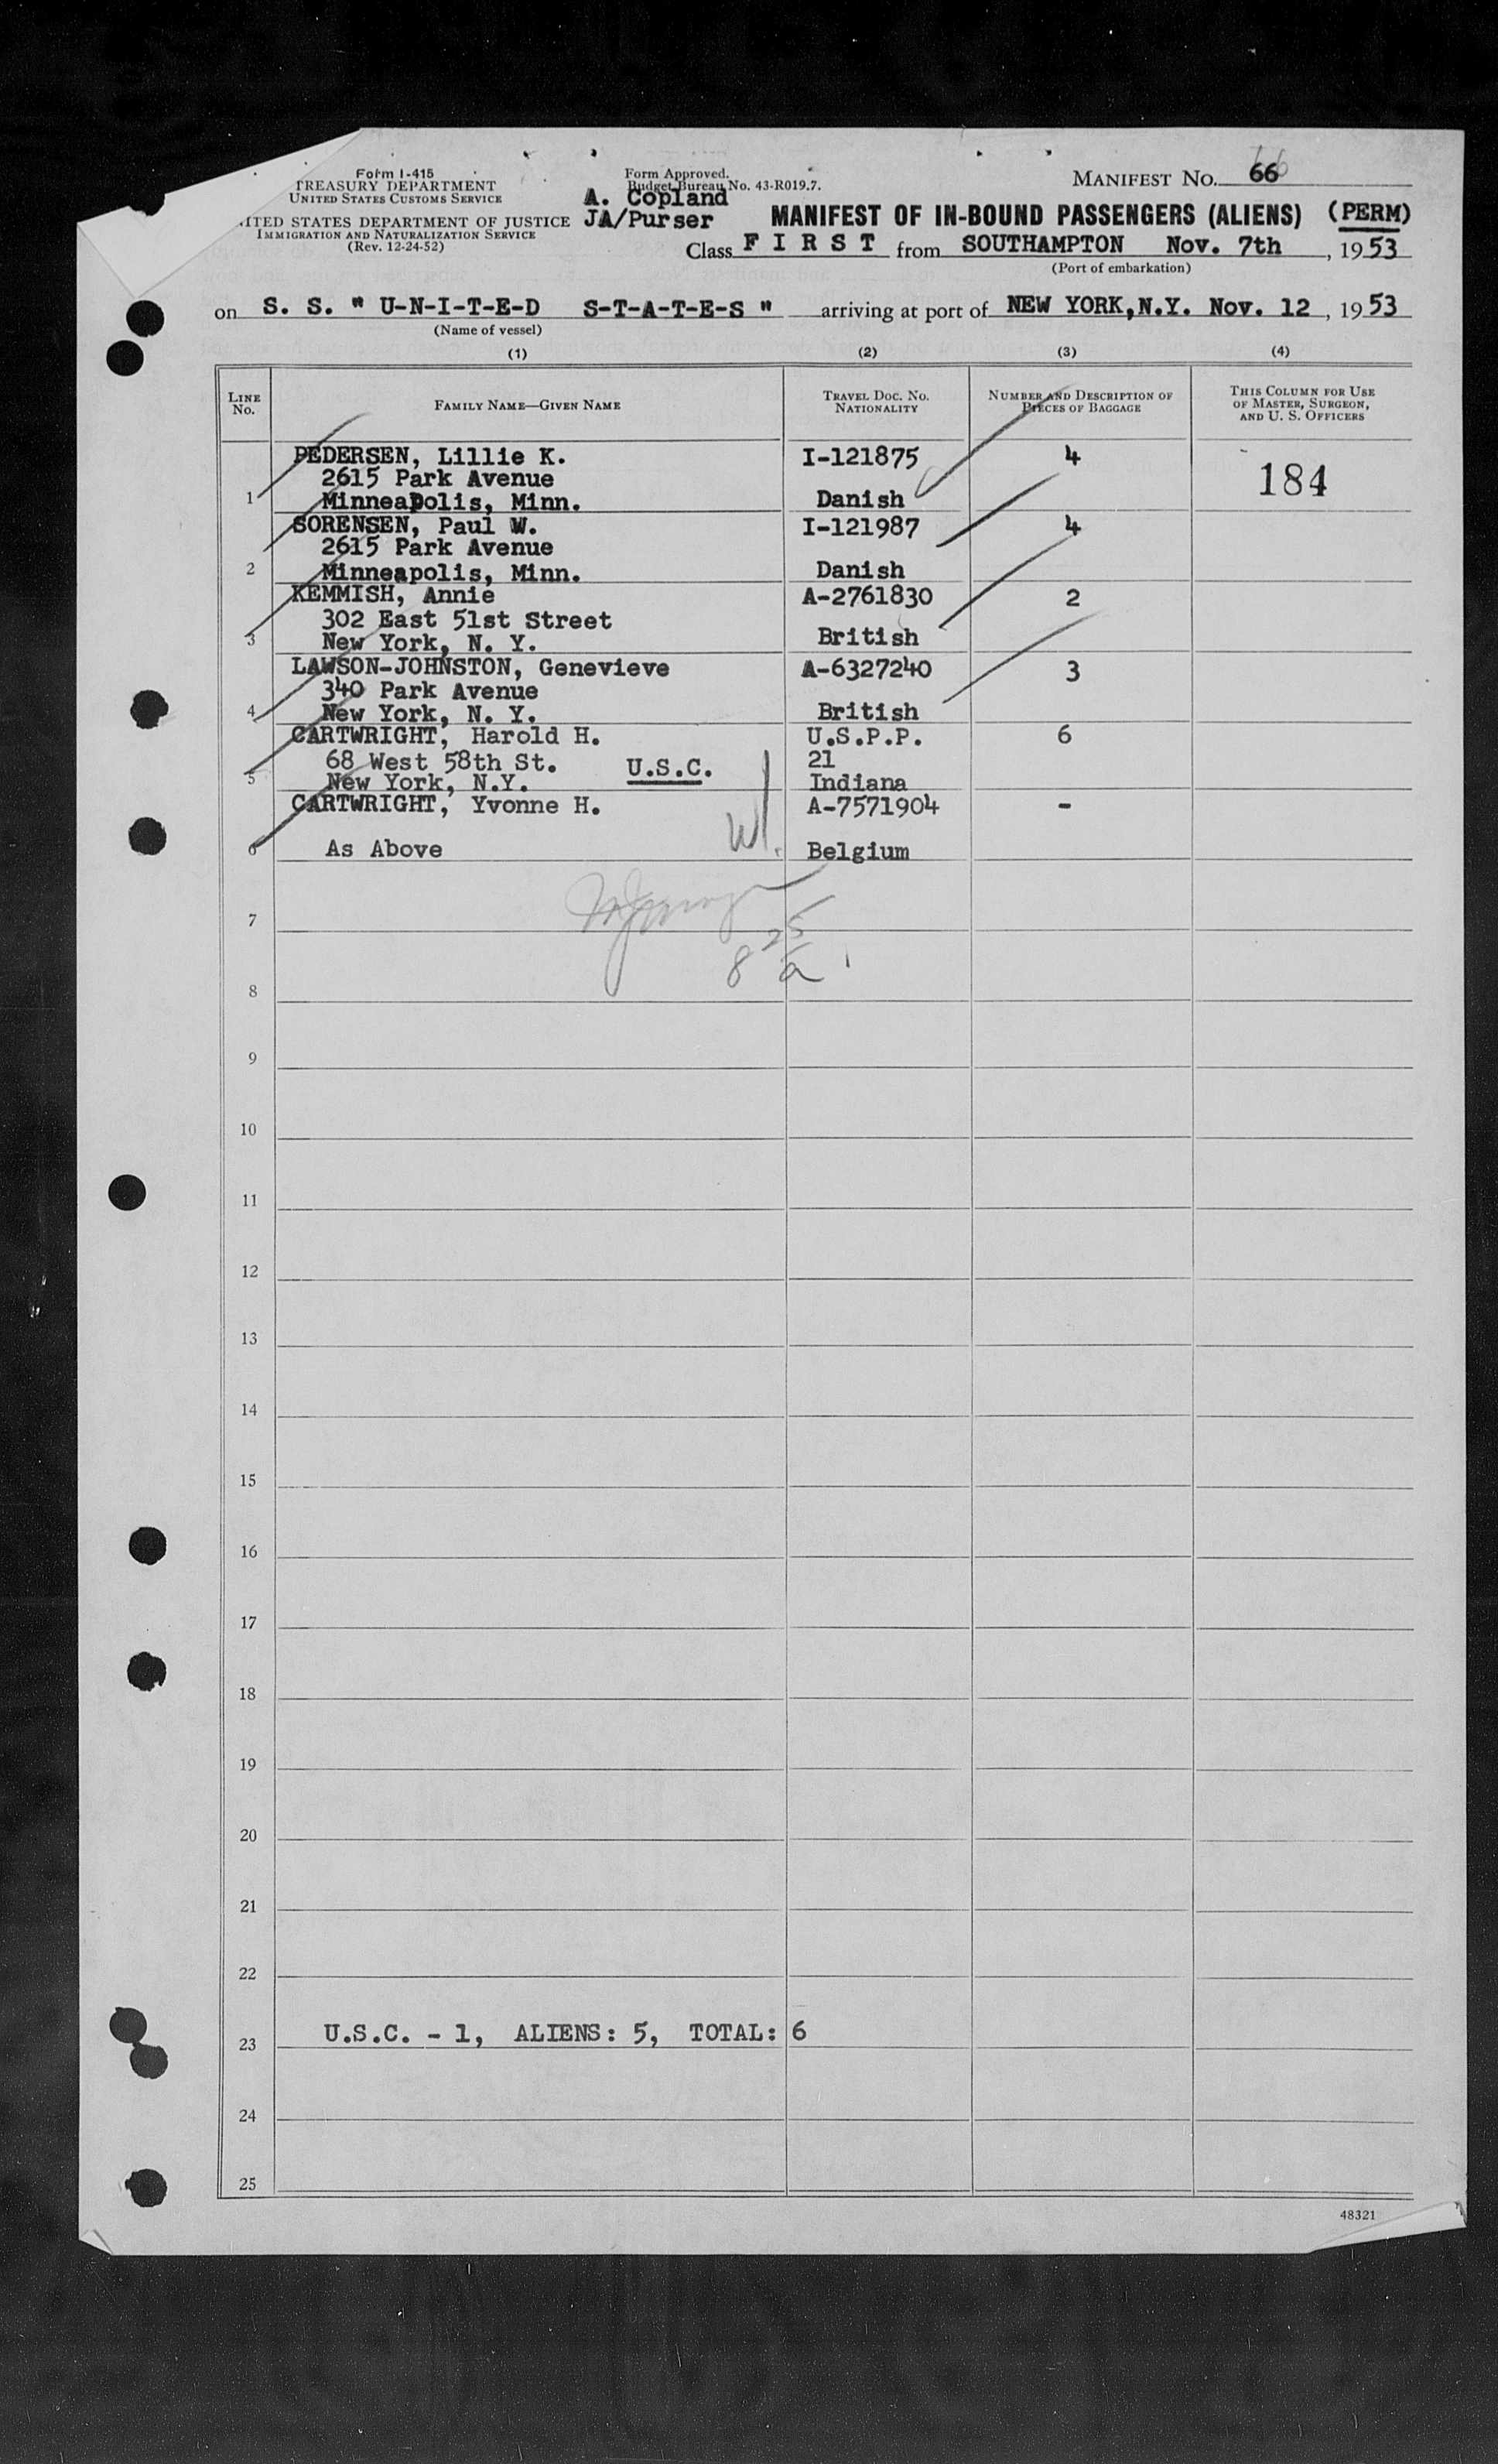 Form I-415
TREASURY DEPARTMENT
UNITED STATES CUSTOMS SERVICE
ITED STATES DEPARTMENT OF JUSTICE
IMMIGRATION AND NATURALIZATION SERVICE
(Rev. 12-24-52)
Form Approved.
Budget Bureau No. 43-R019.7.
A. Copland
JA/Purser
MANIFEST NO. 66
MANIFEST OF IN-BOUND PASSENGERS (ALIENS) (PERM)
Class F I R S T from SOUTHAMPTON Nov. 7th, 1953
(Port of embarkation)
on S. S. " U-N-I-T-E-D S-T-A-T-E-S " arriving at port of NEW YORK, N.Y. Nov. 12, 1953
(Name of vessel)
(1) (2) (3) (4)
LINE NO. FAMILY NAME—GIVEN NAME TRAVEL DOC. NO. NATIONALITY NUMBER AND DESCRIPTION OF PIECES OF BAGGAGE THIS COLUMN FOR USE OF MASTER, SURGEON, AND U. S. OFFICERS
PEDERSEN, Lillie K. I-121875 4
2615 Park Avenue 184
1 Minneapolis, Minn. Danish
SORENSEN, Paul W. I-121987 4
2615 Park Avenue
2 Minneapolis, Minn. Danish
KEMMISH, Annie A-2761830 2
302 East 51st Street
3 New York, N. Y. British
LAWSON-JOHNSTON, Genevieve A-6327240 3
340 Park Avenue
4 New York, N. Y. British
CARTWRIGHT, Harold H. U.S.P.P. 6
68 West 58th St. U.S.C. 21
5 New York, N.Y. Indiana
CARTWRIGHT, Yvonne H. A-7571904 -
6 As Above Belgium
7
8
9
10
11
12
13
14
15
16
17
18
19
20
21
22
23 U.S.C. - 1, ALIENS: 5, TOTAL: 6
24
25
48321